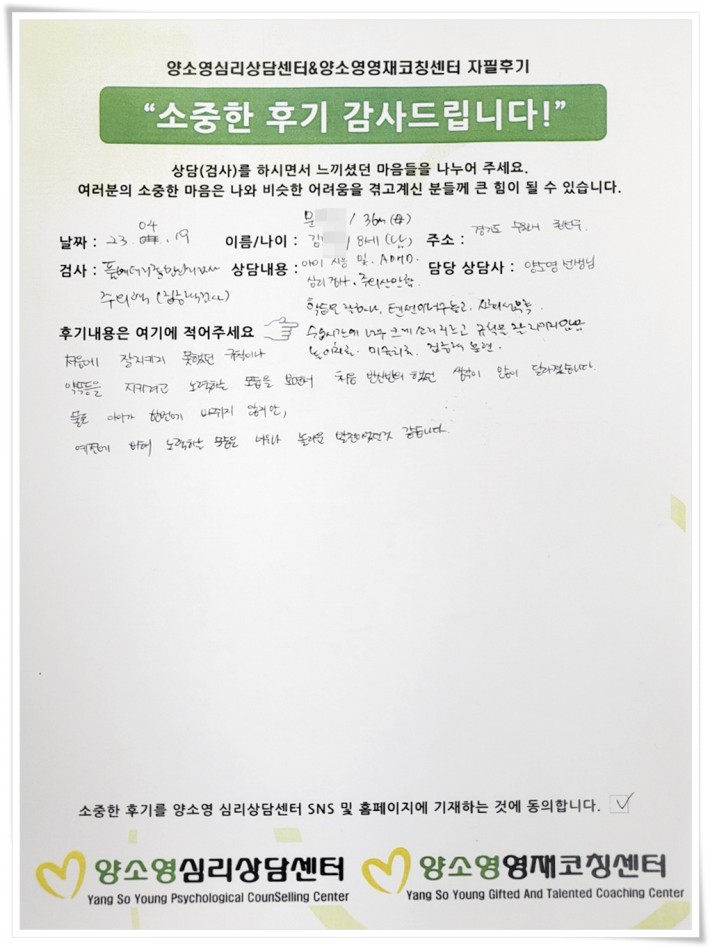 양소영심리상담센터&양소영영재코칭센터 자필후기
“소중한 후기 감사드립니다!”
상담(검사)를 하시면서 느끼셨던 마음들을 나누어 주세요.
여러분의 소중한 마음은 나와 비슷한 어려움을 겪고계신 분들께 큰 힘이 될 수 있습니다.
날짜 : 23. 04 . 19
이름/나이 : 문 / 36세 (母)
김 / 8세 (남)
주소 : 경기도 수원시 권선구
검사 : 풀배터리종합심리검사
주의력 (집중력검사)
상담내용 : 아이 지능 및. ADHD.
심리검사. 주의산만함.
담당 상담사 : 양소영 선생님
학습은 잘하나, 텐션이 너무높고. 사회성부족
수업시간에 너무 크게 소리지르고 규칙을 잘 안지키지않음
놀이치료. 미술치료. 집중력 훈련.
후기내용은 여기에 적어주세요
처음에 잘지키지 못했던 규칙이나
약속들을 지키려고 노력하는 모습을 보면서 처음 반신반의 했던 생각이 많이 달라졌습니다.
물론 아이가 한번에 바뀌지 않겠지만,
예전에 비해 노력하는 모습은 너무나 놀라운 발전이었던것 같습니다.
소중한 후기를 양소영 심리상담센터 SNS 및 홈페이지에 기재하는 것에 동의합니다.
양소영심리상담센터
Yang So Young Psychological CounSelling Center
양소영영재코칭센터
Yang So Young Gifted And Talented Coaching Center